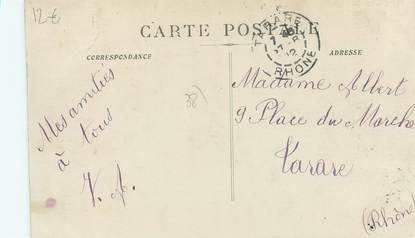 12 €
CARTE POSTALE
CORRESPONDANCE
ADRESSE
TARARE
RHONE
38)
Mes amitiés
à tous
V. A.
Madame Albert
9 Place du Marche
Tarare
(Rhône)